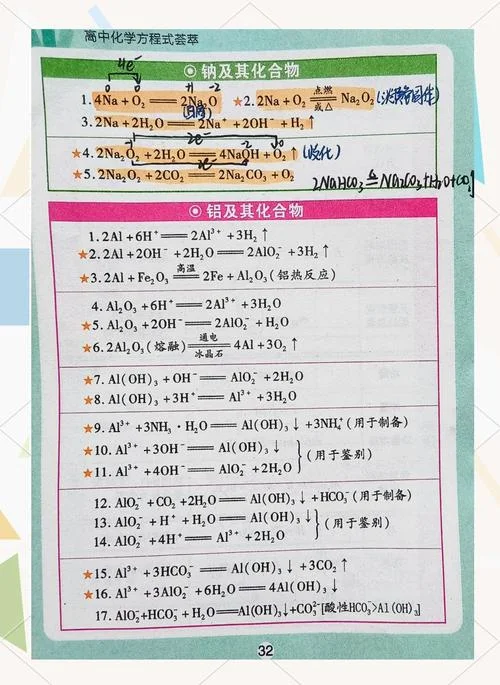 高中化学方程式荟萃
4e⁻
钠及其化合物
0 0 +1 -2
1. 4Na+O₂══2Na₂O ★2. 2Na+O₂ 点燃══或△ Na₂O₂
3. 2Na+2H₂O══2Na⁺+2OH⁻+H₂↑
2e⁻
★4. 2Na₂O₂+2H₂O══4NaOH+O₂↑
★5. 2Na₂O₂+2CO₂══2Na₂CO₃+O₂
2NaHCO₃ △══ Na₂CO₃+H₂O+CO₂↑
铝及其化合物
1. 2Al+6H⁺══2Al³⁺+3H₂↑
★2. 2Al+2OH⁻+2H₂O══2AlO₂⁻+3H₂↑
★3. 2Al+Fe₂O₃ 高温══ 2Fe+Al₂O₃(铝热反应)
4. Al₂O₃+6H⁺══2Al³⁺+3H₂O
★5. Al₂O₃+2OH⁻══2AlO₂⁻+H₂O
★6. 2Al₂O₃(熔融) 通电══冰晶石 4Al+3O₂↑
★7. Al(OH)₃+OH⁻══AlO₂⁻+2H₂O
★8. Al(OH)₃+3H⁺══Al³⁺+3H₂O
★9. Al³⁺+3NH₃·H₂O══Al(OH)₃↓+3NH₄⁺(用于制备)
★10. Al³⁺+3OH⁻══Al(OH)₃↓
(用于鉴别)
★11. Al³⁺+4OH⁻══AlO₂⁻+2H₂O
12. AlO₂⁻+CO₂+2H₂O══Al(OH)₃↓+HCO₃⁻(用于制备)
13. AlO₂⁻+H⁺+H₂O══Al(OH)₃↓
(用于鉴别)
14. AlO₂⁻+4H⁺══Al³⁺+2H₂O
★15. Al³⁺+3HCO₃⁻══Al(OH)₃↓+3CO₂↑
★16. Al³⁺+3AlO₂⁻+6H₂O══4Al(OH)₃↓
17. AlO₂⁻+HCO₃⁻+H₂O══Al(OH)₃↓+CO₃²⁻[酸性HCO₃⁻>Al(OH)₃]
32